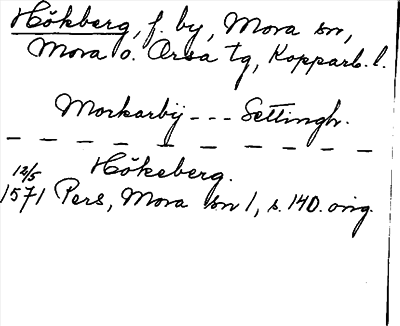 Hökberg, f. by, Mora sn,
Mora o. Orsa tg, Kopparb. l.
Morkarby --- Settingh.
Hökeberg.
12/5
1571 Pers, Mora sn 1, s. 140. orig.